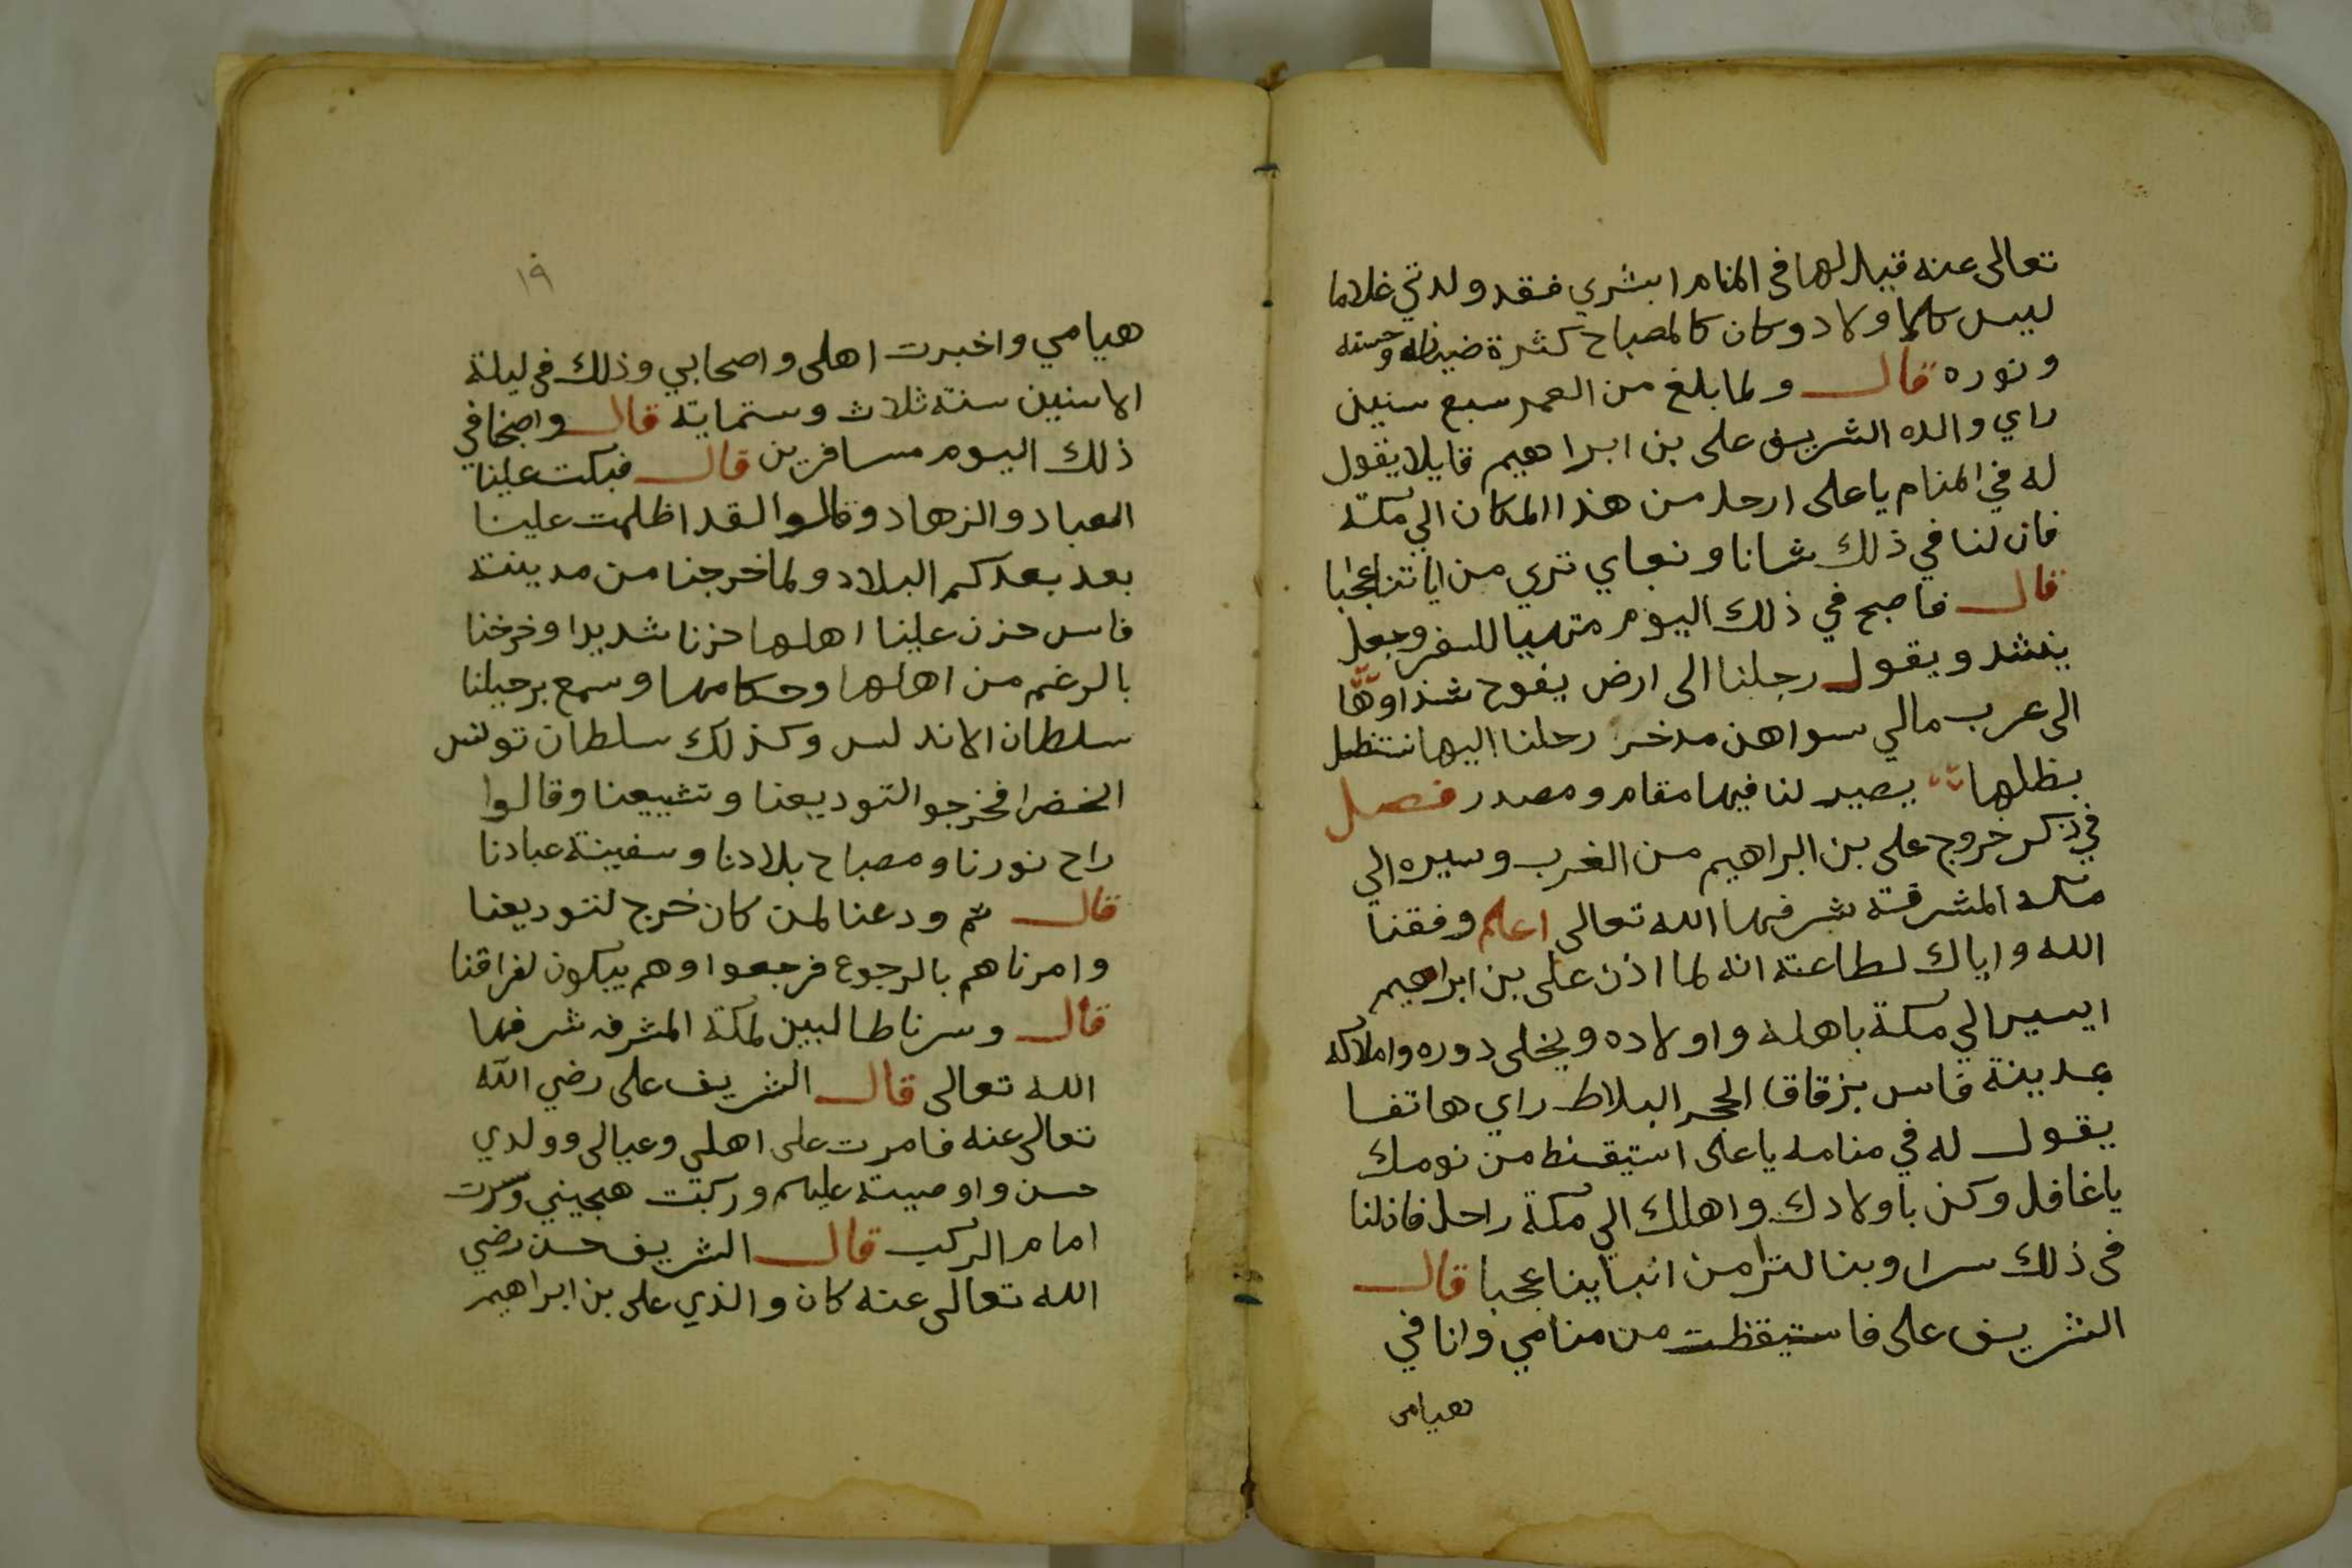 تعالى عنه قيل لها في المنام ابشري فقد ولدتي غلاما
ليس كالاولاد وكان كالمصباح كثرة ضيائه وحسنه
ونوره قال ولما بلغ من العمر سبع سنين
راي والده الشريف على بن ابراهيم قايلا يقول
له في المنام يا على ارحل من هذا المكان الي مكة
فان لنا في ذلك شانا ونباي تري من اياتنا عجبا
قال فاصبح في ذلك اليوم متهييا للسفر وجعل
ينشد ويقول رجلنا الى ارض يفوح شذاوها
الى عرب مالي سواهن مدخر رحلنا اليها نتظل
بظلها يصير لنا فيها مقام ومصدر فصل
في ذكر خروج على بن ابراهيم من الغرب وسيره الي
مكه المشرفة شرفها الله تعالى اعلم وفقنا
الله واياك لطاعته انه لما اذن على بن ابراهيم
ايسير الي مكة باهله واولاده ويخلى دوره واملاكه
بمدينة فاس بزقاق الحجر البلاط راي هاتفا
يقول له في منامه يا على استيقظ من نومك
يا غافل وكن باولادك واهلك الي مكة راحل فاذ لنا
في ذلك سرا وبنا لترا من انباينا عجبا قال
الشريف على فاستيقظت من منامي وانا في
هيامى
١٩
هيامي واخبرت اهلى واصحابي وذلك في ليلة
الاسنين سنة ثلاث وستماية قال واصبحنا في
ذلك اليوم مسافرين قال فبكت علينا
العباد والزهاد وقالوا لقد اظلمت علينا
بعد بعدكم البلاد ولما خرجنا من مدينة
فاس حزن علينا اهلها حزنا شديدا وخرجنا
بالرغم من اهلها وحكامها وسمع برحيلنا
سلطان الاندلس وكذلك سلطان تونس
الخضرا فخرجوا لتوديعنا وتشييعنا وقالوا
راح نورنا ومصباح بلادنا وسفينة عبادنا
قال ثم ودعنا لمن كان خرج لتوديعنا
وامرناهم بالرجوع فرجعوا وهم يبكون لفراقنا
قال وسرنا طالبين لمكة المشرفه شرفها
الله تعالى قال الشريف على رضي الله
تعالى عنه فامرت على اهلي وعيالى وولدي
حسن واوصيته عليهم وركبت هجيني وسرت
امام الركب قال الشريف حسن رضي
الله تعالى عنه كان والذي على بن ابراهيم